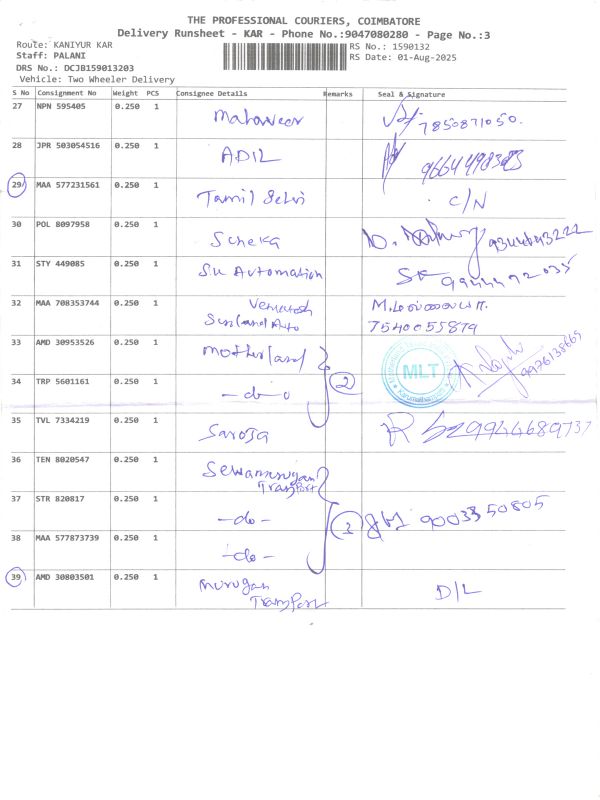 THE PROFESSIONAL COURIERS, COIMBATORE
Delivery Runsheet - KAR - Phone No.:9047080280 - Page No.:3
Route: KANIYUR KAR RS No.: 1590132
Staff: PALANI RS Date: 01-Aug-2025
DRS No.: DCJB159013203
Vehicle: Two Wheeler Delivery
S No Consignment No Weight PCS Consignee Details Remarks Seal & Signature
27 NPN 595405 0.250 1 Mahaveer 7850871050.
28 JPR 503054516 0.250 1 ADIL
29 MAA 577231561 0.250 1 Tamil Selvi C/N
30 POL 8097958 0.250 1 Scheka
31 STY 449085 0.250 1 S.K Automation
32 MAA 708353744 0.250 1 Venkatesh
Sunland Auto 7540055879
33 AMD 30953526 0.250 1 Motherland 9976138669
34 TRP 5601161 0.250 1 -do- 2 MLT
35 TVL 7334219 0.250 1 Saroja 9944689737
36 TEN 8020547 0.250 1
Transport
37 STR 820817 0.250 1 -do- 3 9003350805
38 MAA 577873739 0.250 1 -do-
39 AMD 30803501 0.250 1 Murugan
Transport D/L